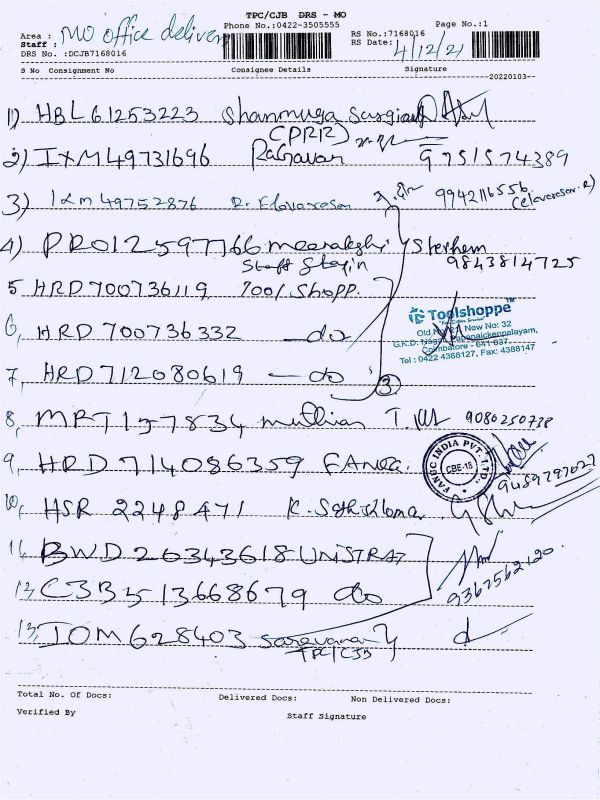 TPC/CJB DRS - MO
Phone No.:0422-3505555 Page No.:1
Area : MO office delivery
RS No.:7168016
Staff :
RS Date: 4/12/21
DRS No. :DCJB7168016
S No Consignment No Consignee Details Signature
20220103
1) HBL61253223 Shanmuga
(PRR)
2) IXM49731696 Ragavan 9751574389
3) IXM 49752876 R. Elavarasan 9942116556
(elavarasan.R)
4) PRO12597766 meenakshi
Staff 9843814725
5 HRD700736119 Shopp.
6, HRD 700736332 — do
Toolshoppe™
New No: 32
Coimbatore - 641 037.
Tel : 0422 4388127, Fax: 4388147
7, HRD 712080619 — do
3
8, MRT157834 muthian 9080250738
9, HRD 714086359 FANUC
FANUC INDIA PVT. LTD.
CBE-18
9489797027
10, HSR 2248471
11, BWD 26343618 UNISTRAT
9367562120
12, CJB513668679 do
13, IOM628403 Saravanan
TPC/CJB
Total No. Of Docs: Delivered Docs: Non Delivered Docs:
Verified By Staff Signature